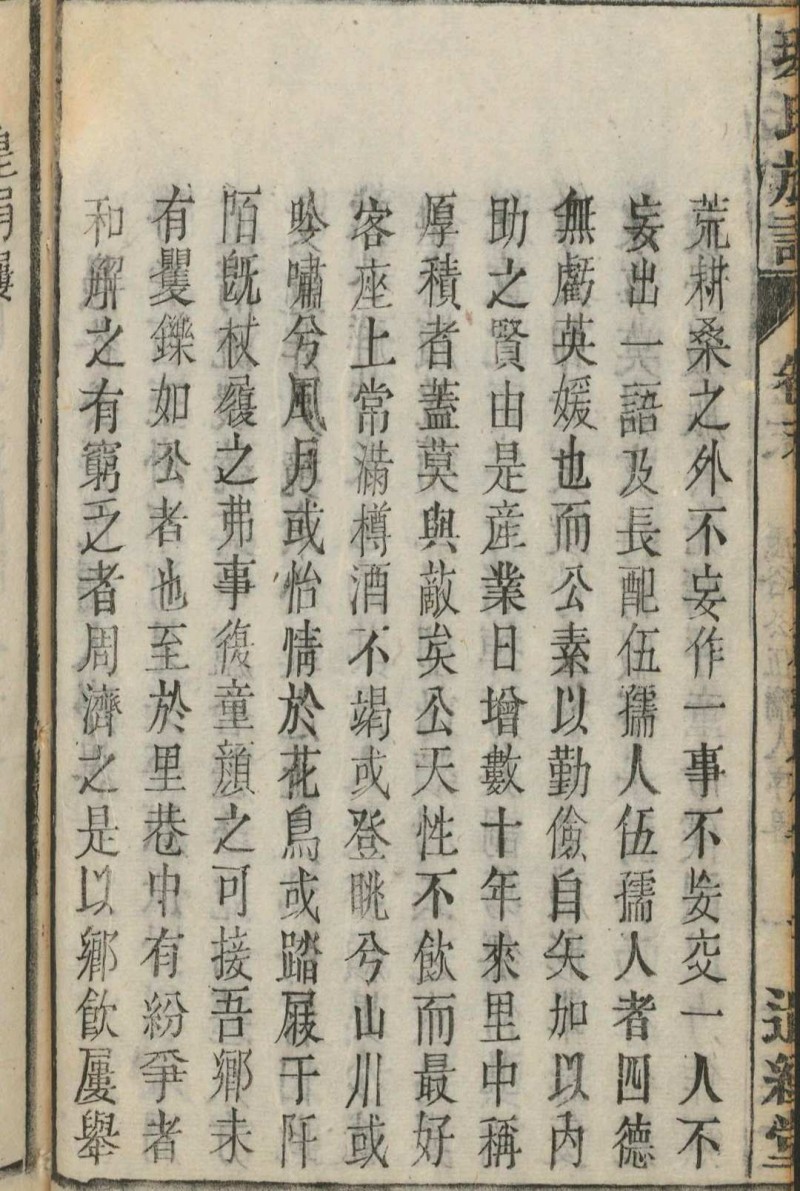 荒耕桑之外不妄作一事不妄交一人不
妄出一語及長配伍孺人伍孺人者四德
無虧英媛也而公素以勤儉自矢加以內
助之賢由是産業日增數十年來里中稱
厚積者蓋莫與敵矣公天性不飲而最好
客座上常滿樽酒不竭或登眺兮山川或
吟嘯兮風月或怡情於花鳥或踏屐于阡
陌旣杖履之弗事復童顔之可接吾鄉未
有矍鑠如公者也至於里巷中有紛爭者
和解之有窮乏者周濟之是以鄉飲屢舉